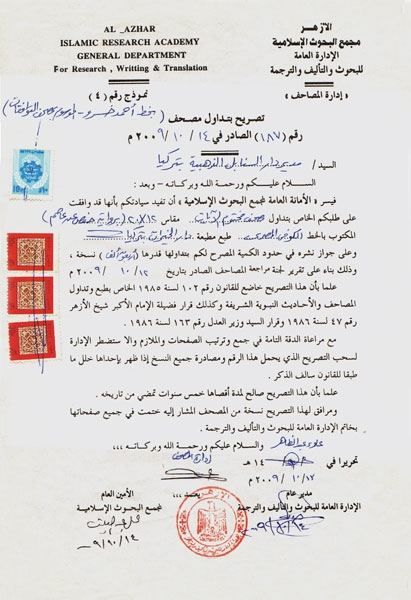 AL _AZHAR
ISLAMIC RESEARCH ACADEMY
GENERAL DEPARTMENT
For Research , Writting & Translation
الازهـــر
مجمع البحوث الإسلامية
الإدارة العامة
للبحوث والتأليف والترجمة
« إدارة المصاحف »
نموذج رقم ( ٤ )
تصريح بتداول مصحف
رقم (١٨٧) الصادر في ١٤ / ١٠ / ٢٠٠٩ م
السيد / مدير دار السنابل الذهبية بتركيا
السـلام عليـكـم ورحمـة اللـه وبـركـاتـه - وبعد :
فيسـر « الأمانة العامة لمجمع البحوث الإسلامية » أن تفيد سيادتكم بأنها قد وافقت
على طلبكم الخاص بتداول مصحف مقاس ٢٠×١٤
المكتوب بالخط طبع مطبعة بتركيا
وعلى جواز نشره في حدود الكمية المصرح لكم بتداولها قدرها نسخة ،
وذلك بناء على تقرير لجنة مراجعة المصاحف الصادر بتاريخ ١٢ / ١٠ / ٢٠٠٩ م
علما بأن هذا التصريح خاضع للقانون رقم ١٠٢ لسنة ١٩٨٥ الخاص بطبع وتداول
المصاحف والأحاديث النبوية الشريفة وكذلك قرار فضيلة الإمام الأكبر شيخ الأزهر
رقم ٤٧ لسنة ١٩٨٦ وقرار السيد وزير العدل رقم ١٦٣ لسنة ١٩٨٦ .
مع مراعاة الدقة التامة في جمع وترتيب الصفحات والملازم والا ستضطر الإدارة
لسحب التصريح الذي يحمل هذا الرقم ومصادرة جميع النسخ إذا ظهر بإحداها خلل ما
طبقا للقانون سالف الذكر .
علما بأن هذا التصريح صالح لمدة أقصاها خمس سنوات تمضي من تاريخه .
ومرافق لهذا التصريح نسخة من المصحف المشار إليه ختمت في جميع صفحاتها
بخاتم الإدارة العامة للبحوث والتأليف والترجمة .
والسـلام عليـكم ورحمـة اللـه وبـركـاته ،،،
تحريرا في ١٤ هـ
١٢ / ١٠ / ٢٠٠٩ م
إدارة المصحف
يعتمد ،،،
مدير عام
الإدارة العامة للبحوث والتأليف والترجمة
الأمين العام
لمجمع البحوث الإسلامية